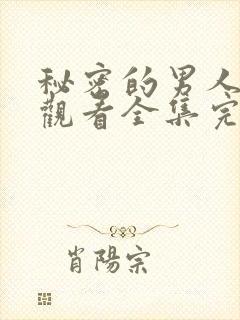 秘密的男人
觀看全集完
肖陽宗